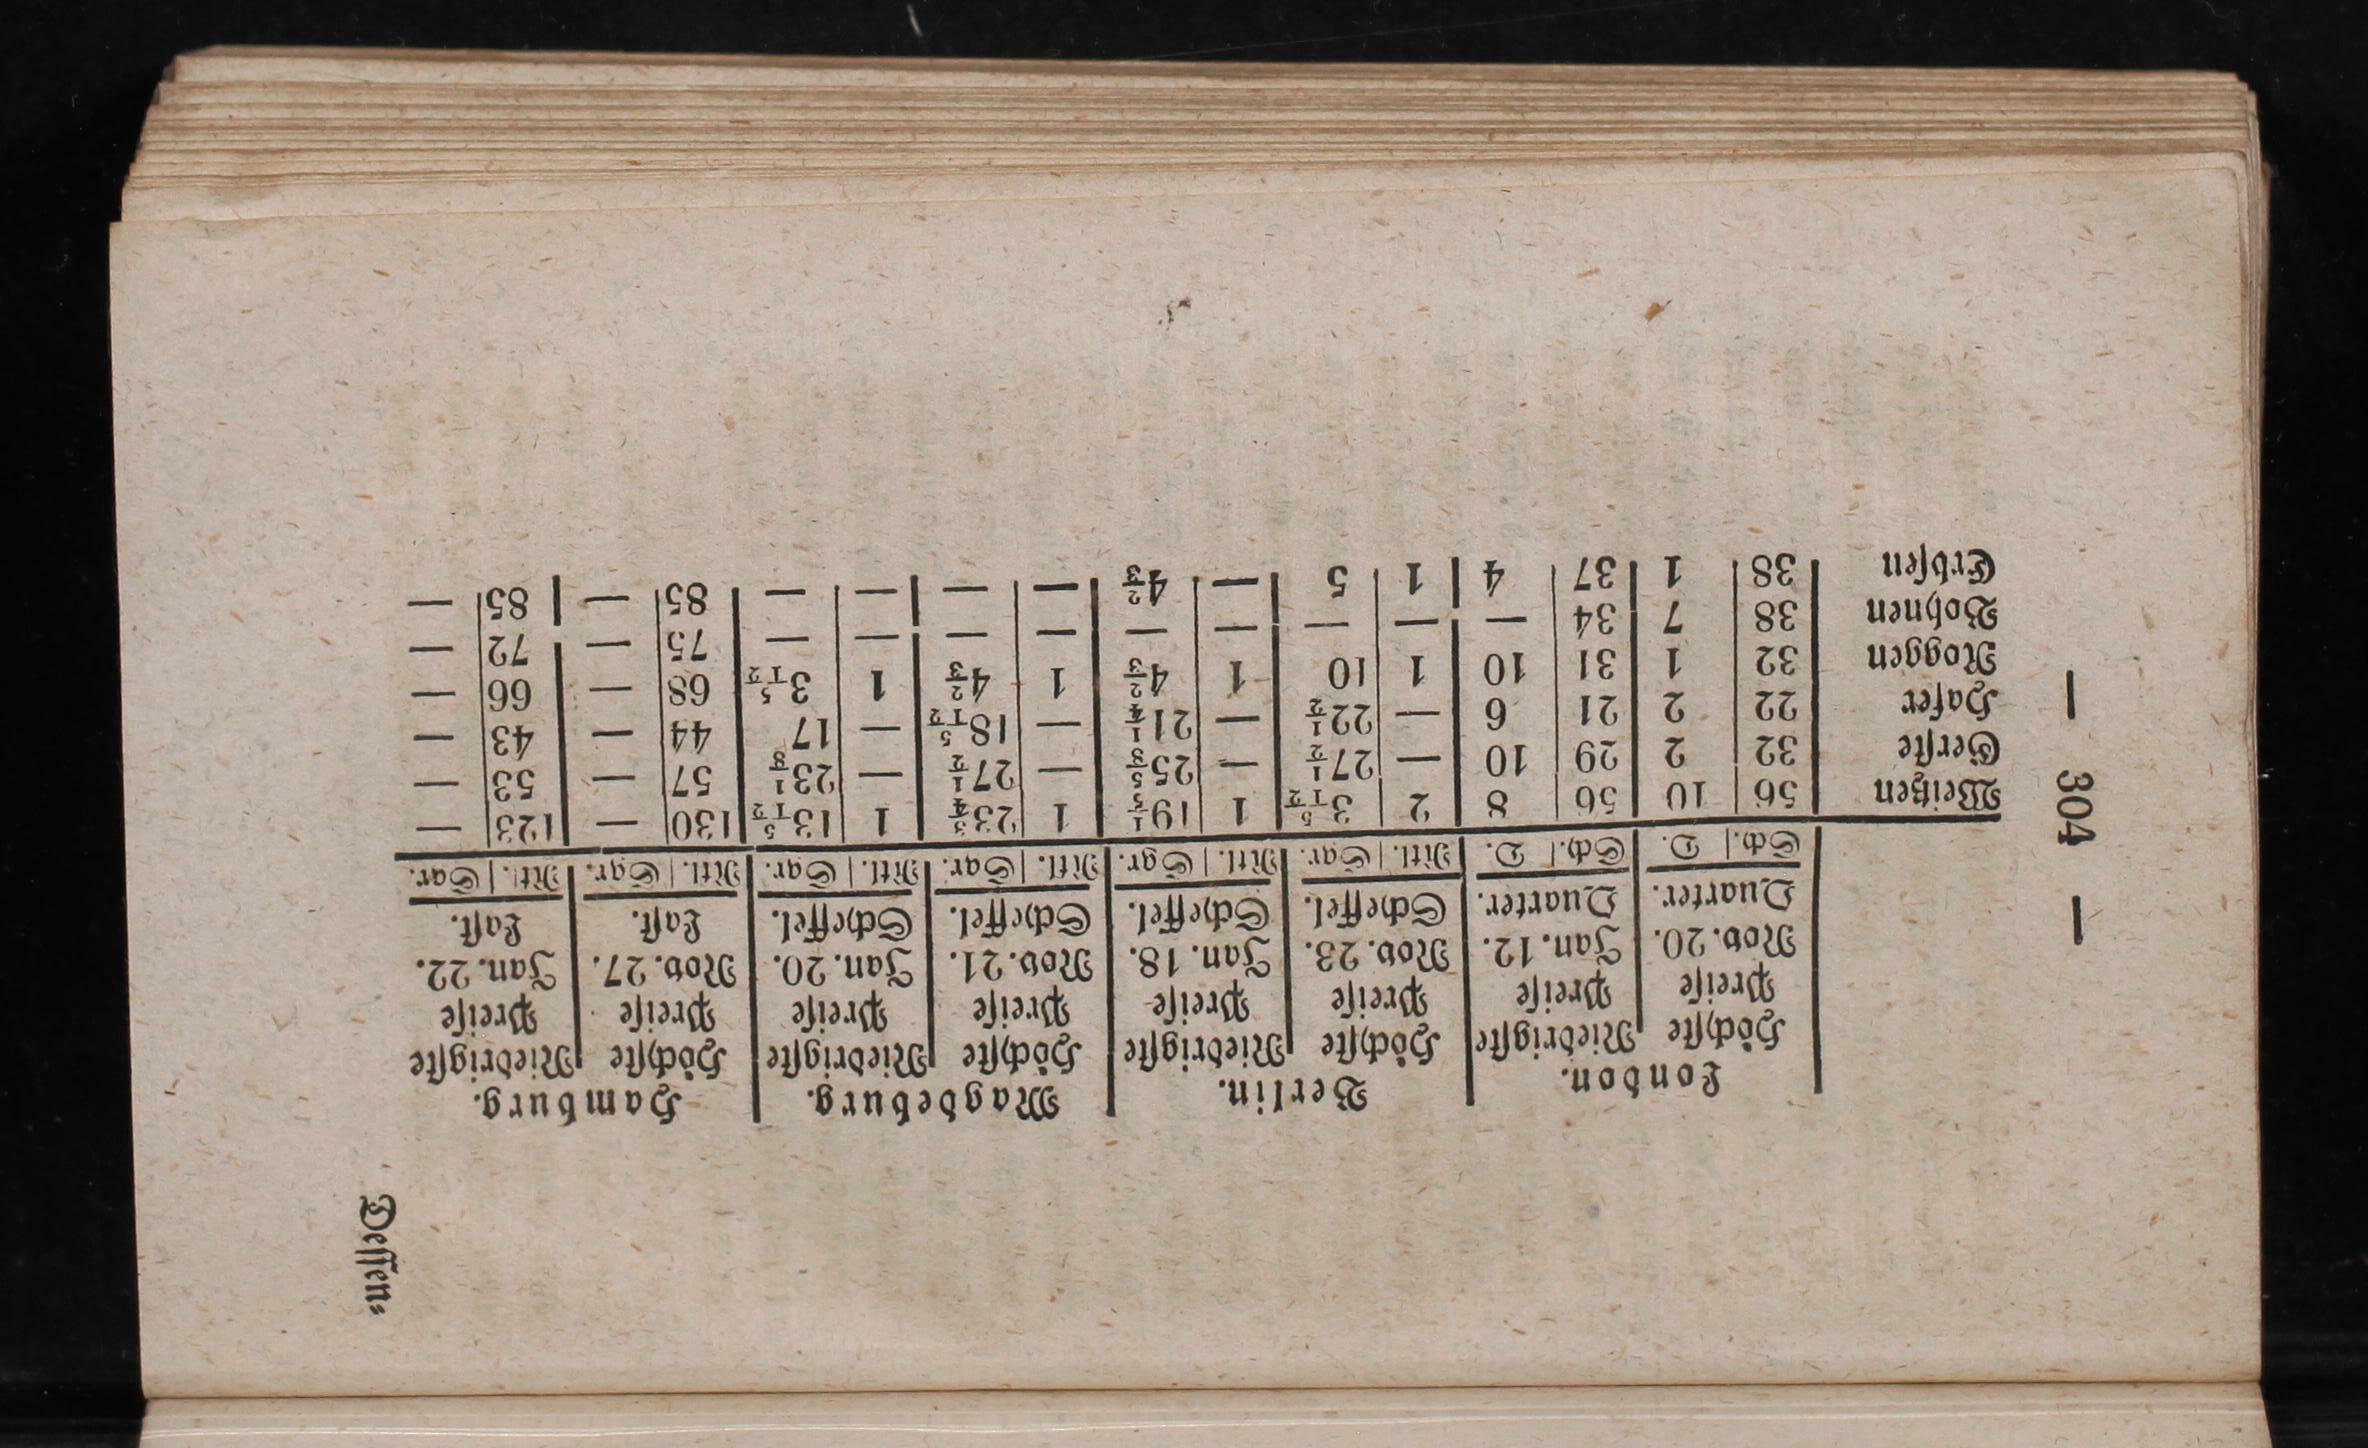 — 304 —
London. Berlin. Magdeburg. Hamburg.
Höchste Niedrigste Höchste Niedrigste Höchste Niedrigste Höchste Niedrigste
Preise Preise Preise Preise Preise Preise Preise Preise
Nov. 20. Jan. 12. Nov. 23. Jan. 18. Nov. 21. Jan. 20. Nov. 27. Jan. 22.
Quarter. Quarter. Scheffel. Scheffel. Scheffel. Scheffel. Last. Last.
Sch. D. Sch. D. Rtl. Sgr. Rtl. Sgr. Rtl. Sgr. Rtl. Sgr. Rtl. Sgr. Rtl. Sgr.
Weitzen 56 10 56 8 2 3 5/12 1 19 1/5 1 23 3/4 1 13 5/12 130 — 123 —
Gerste 32 2 29 10 — 27 1/2 — 25 5/8 — 27 1/2 — 23 1/8 57 — 53 —
Hafer 22 2 21 6 — 22 1/2 — 21 1/4 — 18 5/12 — 17 44 — 43 —
Roggen 32 1 31 10 1 10 1 4 2/3 1 4 2/3 1 3 5/12 68 — 66 —
Bohnen 38 7 34 — — — — — — — — — 75 — 72 —
Erbsen 38 1 37 4 1 5 — 4 2/3 — — — — 85 — 85 —
Dessen-